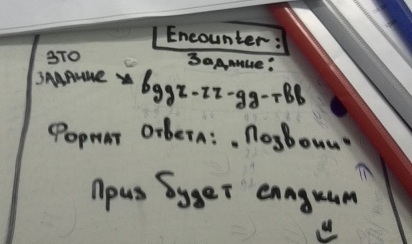 Encounter:
Задание:
это
задание → вддг-гг-дд-твв
Формат ответа: "Позвони"
Приз будет сладким